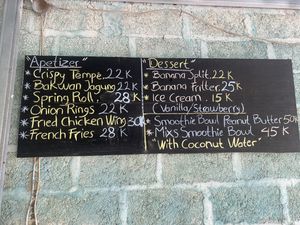 "Apetizer"
* Crispy Tempe. 22 K
* Bakwan Jagung 22 K
* Spring Roll. 28 K
* Onion Rings 22 K
* Fried Chicken Wing 30K
* French Fries 28 K
"Dessert"
* Banana Split. 22 K
* Banana Fritter. 25 K
* Ice Cream. 15 K
(Vanilla/Strawberry)
* Smoothie Bowl Peanut Butter 50K
* Mixs Smoothie Bowl 45 K
"With Coconut Water"